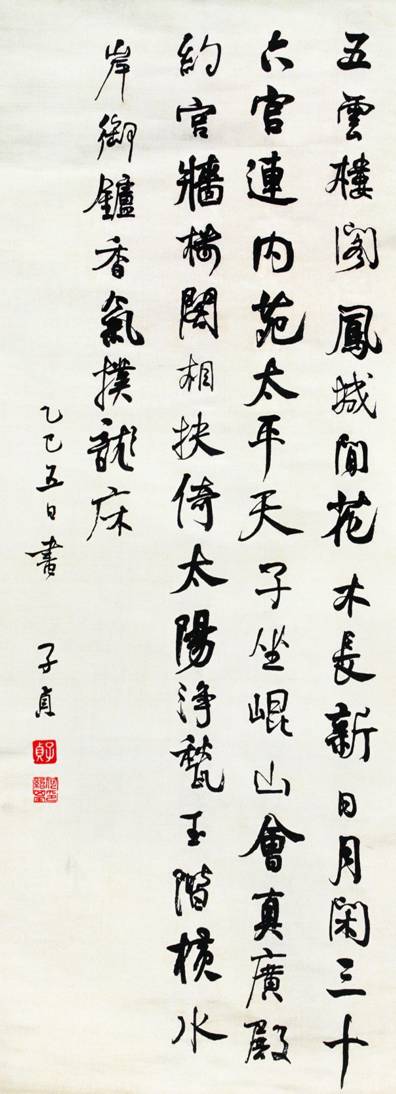 五雲樓閣鳳城間花木長新日月閑三十
六宮連內苑太平天子坐崐山會真廣殿
約宮牆樓閣相扶倚太陽淨甃玉階橫水
岸御鑪香氣撲龍床
乙巳五日書 子貞
子貞